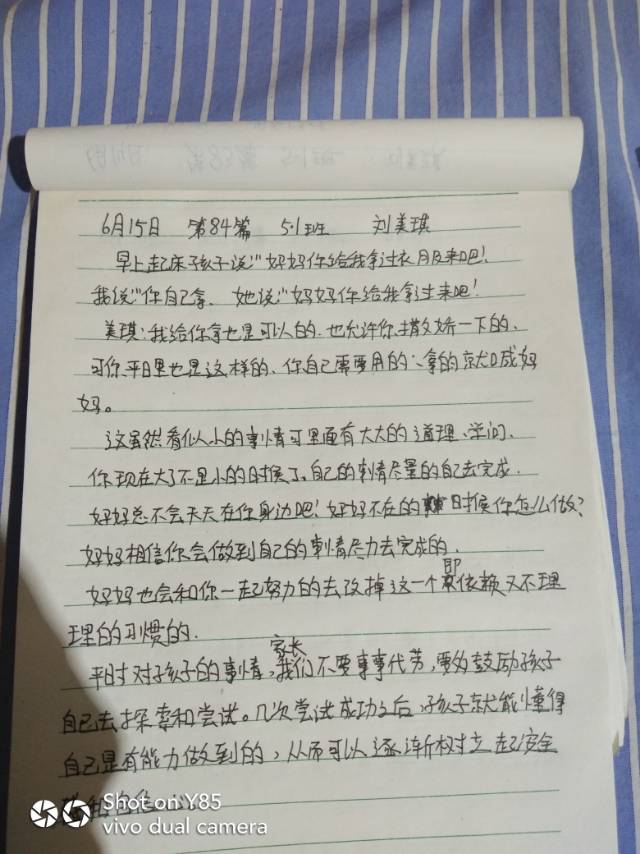 6月15日 第84篇 5.1班 刘美琪
早上起床孩子说:"妈妈你给我拿过衣服来吧!
我说:"你自己拿. 她说:"妈妈你给我拿过来吧!
美琪:我给你拿也是可以的.也允许你撒娇一下的、
可你平日里也是这样的、你自己需要用的、拿的就喊妈
妈。
这虽然看似小的事情可里面有大大的道理、学问、
你现在大了不是小的时候了,自己的事情尽量的自己去完成.
妈妈总不会天天在你身边吧!妈妈不在的时候你怎么做?
妈妈相信你会做到自己的事情尽力去完成的、
妈妈也会和你一起努力的去改掉这一个即依赖又不理
理的习惯的.
平时对孩子的事情,家长我们不要事事代劳,要多鼓励孩子
自己去探索和尝试。几次尝试成功之后,孩子就能懂得
自己是有能力做到的,从而可以逐渐树立起安全
Shot on Y85
vivo dual camera